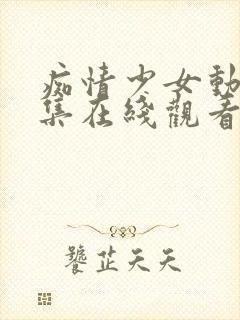 痴情少女動
集在綫觀看
饕芷天天